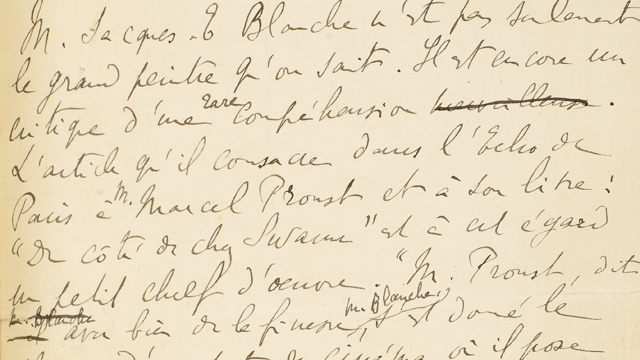 M. Jacques-E Blanche n'est pas seulement
le grand peintre qu'on sait. Il est encore un
critique d'une rare compréhension merveilleuse.
L'article qu'il consacre dans l'Echo de
Paris à M. Marcel Proust et à son livre :
"Du côté de chez Swann" est à cet égard
un petit chef d'oeuvre. "M. Proust, dit
M. Blanche avec bien de la finesse, M. Blanche, est doué le
cinéma où il pose